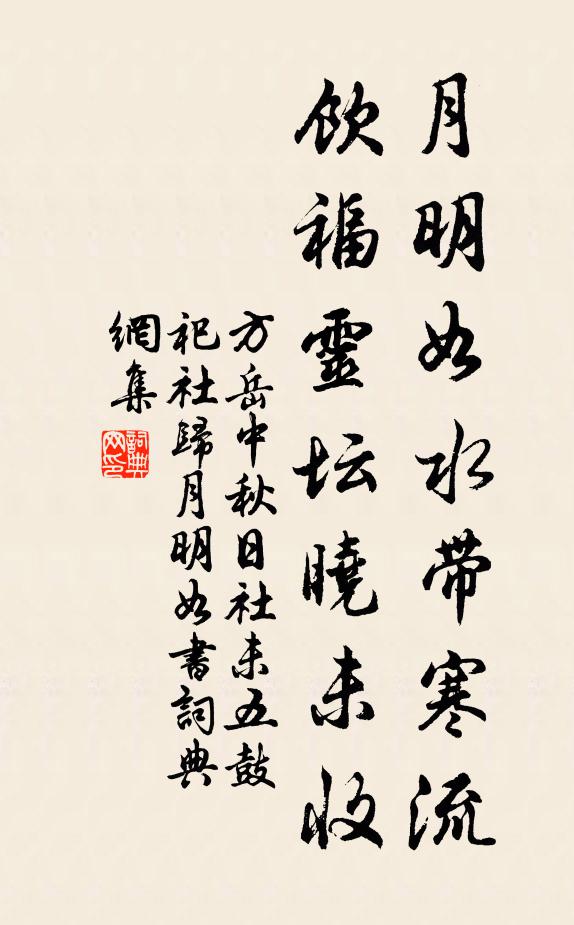 月明如水帶寒流
飲福靈坛曉未收
方岳中秋日社未五鼓
祀社歸月明如書詞典
網集
詞典
网印